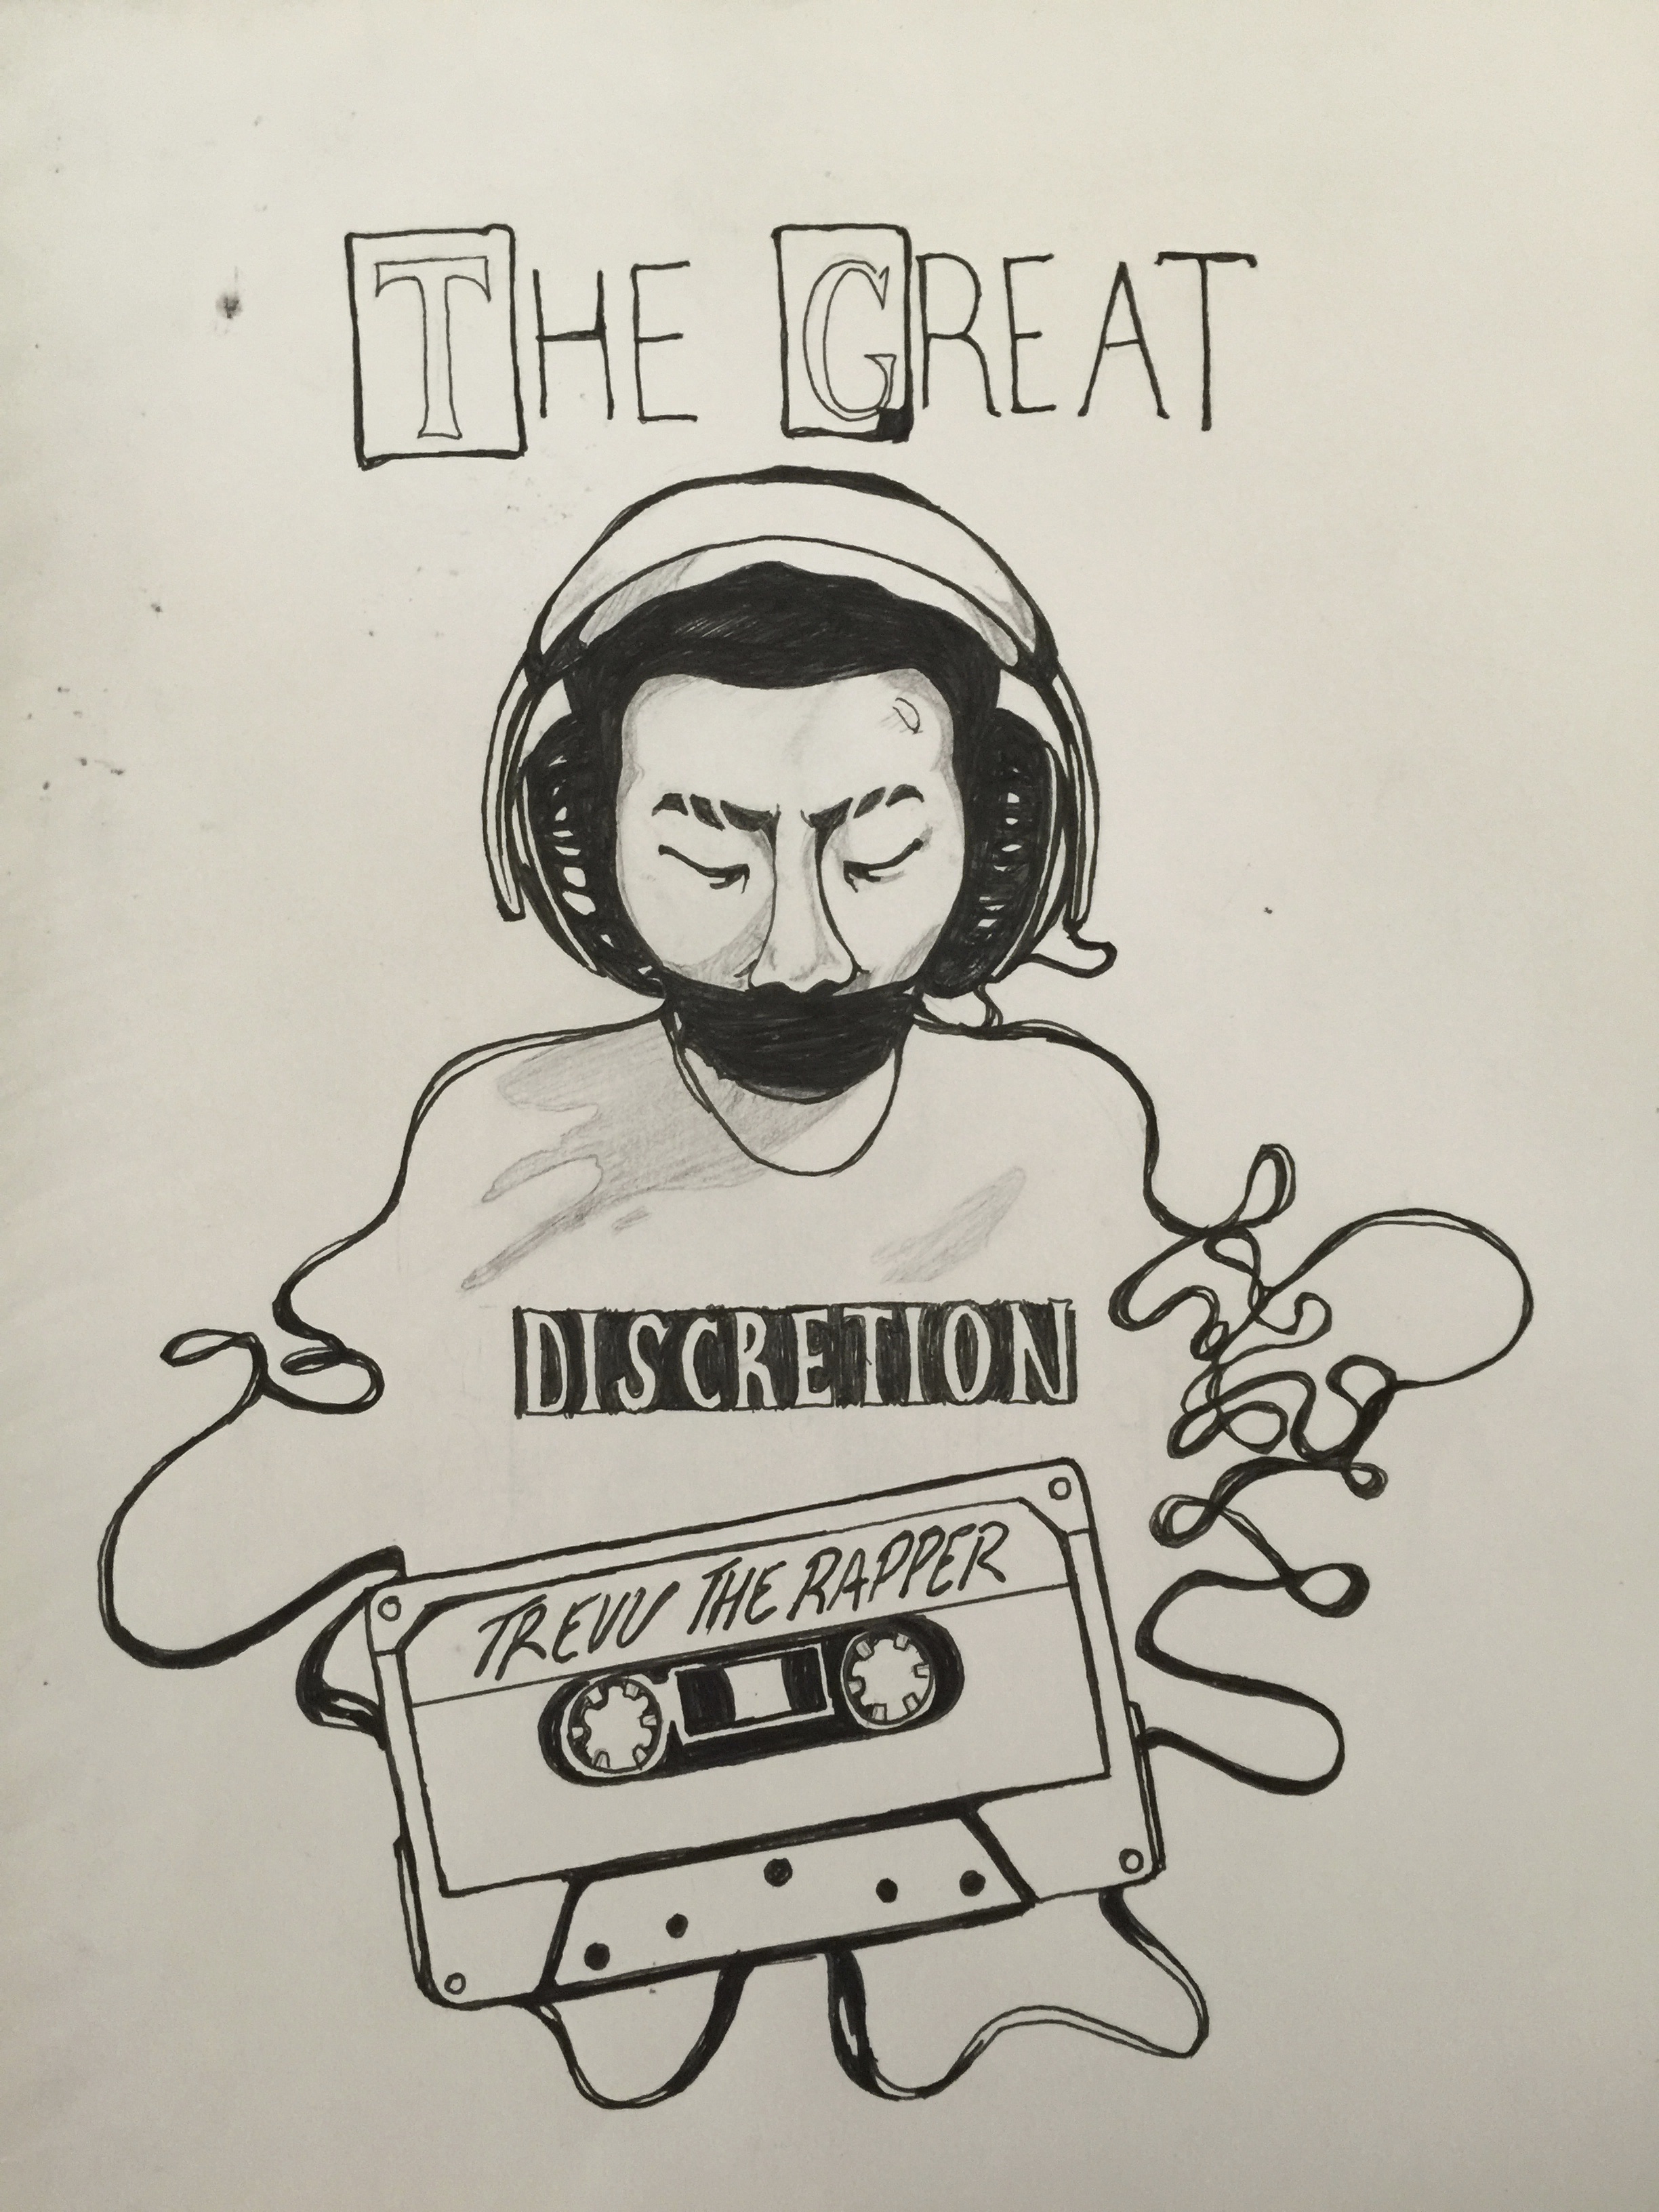 THE GREAT
DISCRETION
TREVU THE RAPPER